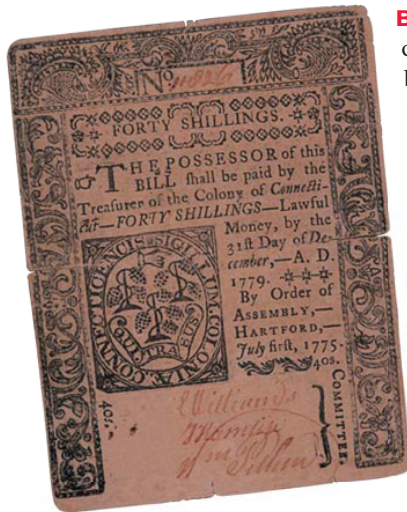 No
FORTY SHILLINGS.
THE POSSESSOR of this
BILL ſhall be paid by the
Treaſurer of the Colony of Connecti-
cut—FORTY SHILLINGS—Lawful
Money, by the
31ſt Day of De-
cember,—A. D.
1779.
By Order of
ASSEMBLY,—
HARTFORD,—
July firſt, 1775.
40s.
SIGILLUM. COLONIÆ. CONNECTICENCIS
40s.
COMMITTEE.
Williams